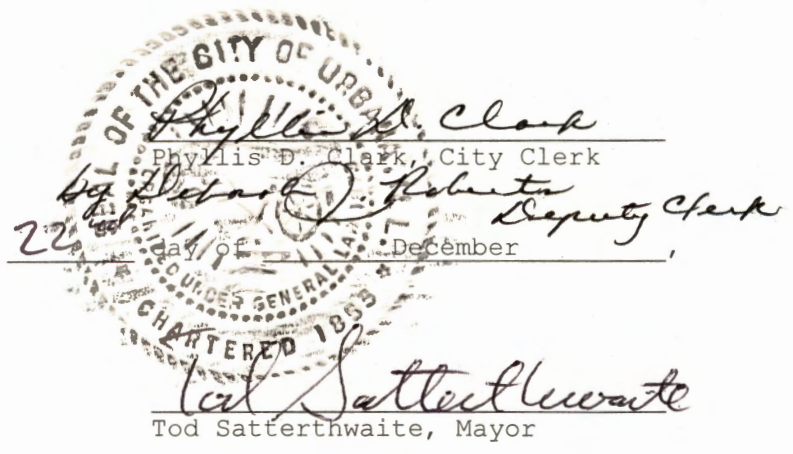 SEAL OF THE CITY OF URBANA
UNDER GENERAL LAW
CHARTERED 1855
Phyllis D. Clark
Phyllis D. Clark, City Clerk
by Deborah J. Roberts
Deputy Clerk
22nd day of December,
Tod Satterthwaite
Tod Satterthwaite, Mayor